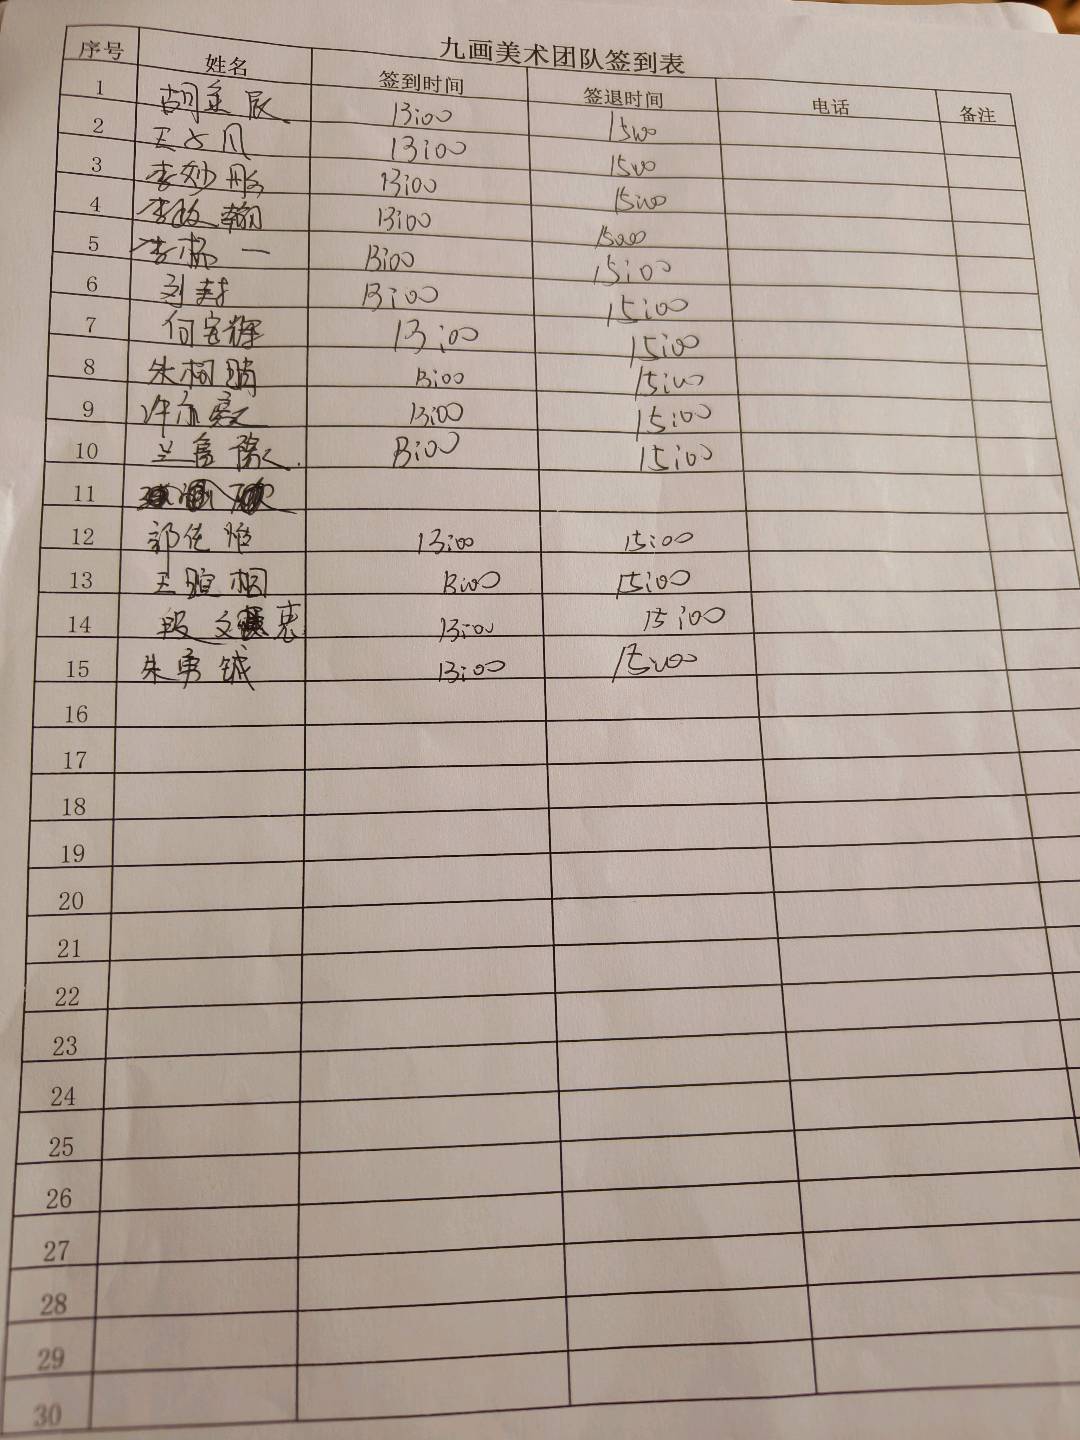 九画美术团队签到表
序号 姓名 签到时间 签退时间 电话 备注
1 胡 辰 13:00 15:00
2 王 凡 13:00 15:00
3 李妙彤 13:00 15:00
4 李 翰 13:00 15:00
5 李 一 13:00 15:00
6 刘 13:00 15:00
7 何宝辉 13:00 15:00
8 朱柯 13:00 15:00
9 许 13:00 15:00
10 兰 13:00 15:00
11
12 郭佳 13:00 15:00
13 王 桐 13:00 15:00
14 段文 13:00 15:00
15 朱勇铖 13:00 15:00
16
17
18
19
20
21
22
23
24
25
26
27
28
29
30